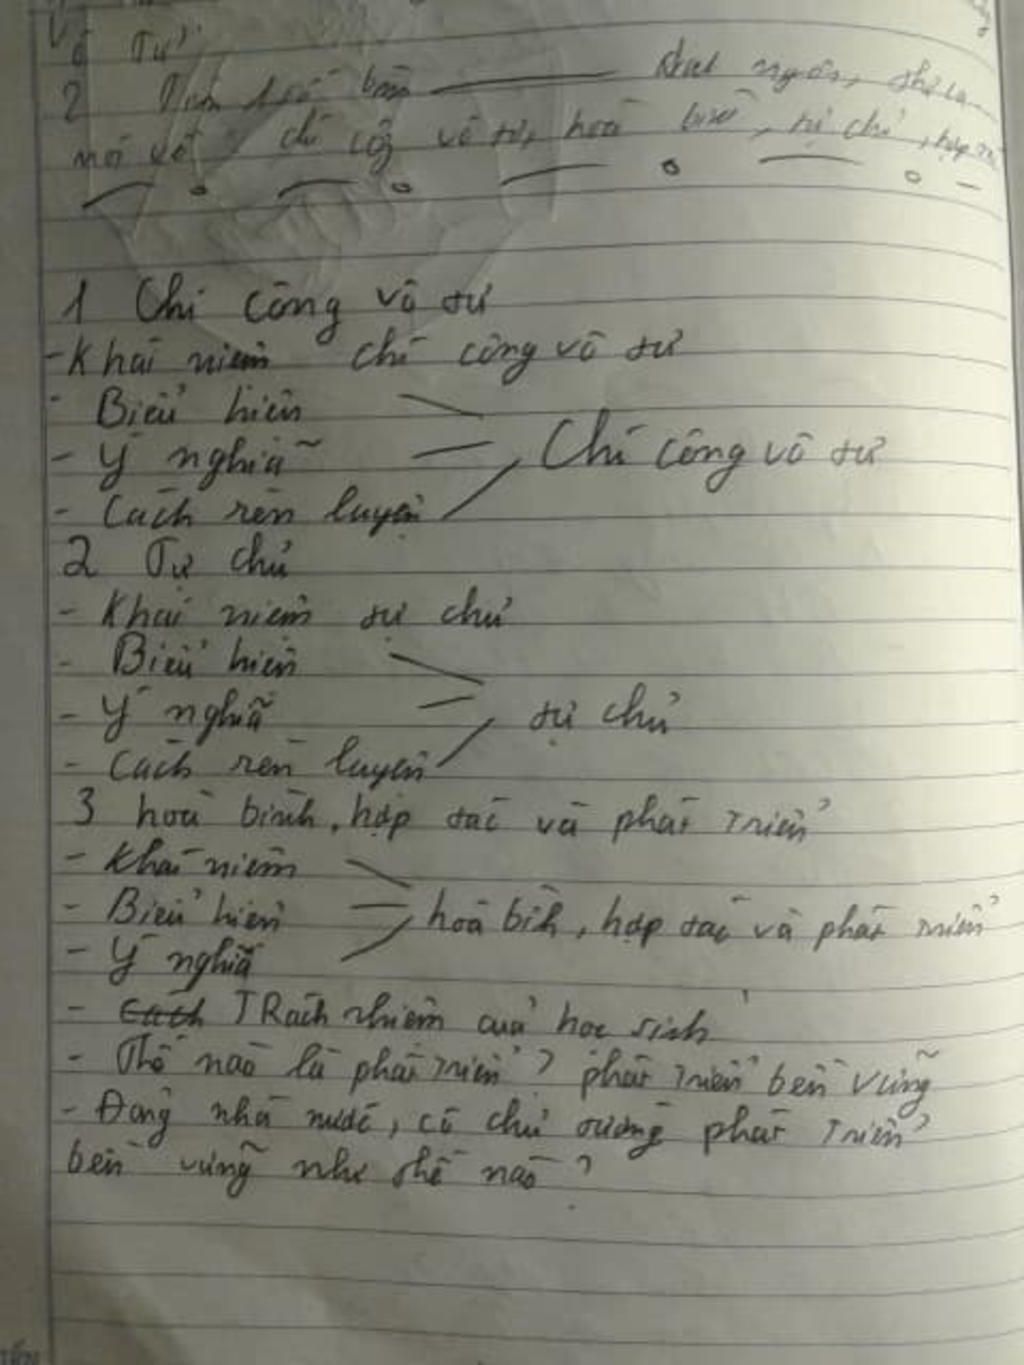 Tư
2 bản danh ngôn,
nói về chí côg vô tư, hoà bình, tự chủ, hợp
1 Chí công vô tư
- Khái niệm chí công vô tư
- Biểu hiện
- Ý nghĩã Chí công vô tư
- Cách rèn luyện
2 Tự chủ
- Khái niệm tự chủ
- Biểu hiện
- Ý nghĩã tự chủ
- Cách rèn luyện
3 hoà bình, hợp tác và phát triển
- Khái niệm
- Biểu hiện hoà bìh, hợp tác và phát triển
- Ý nghĩã
- Cách TRách nhiệm của học sinh
- Thế nào là phát triển? phát triển bền vững
- Đảng nhà nước, có chủ trương phát triển
bền vững như thế nào?